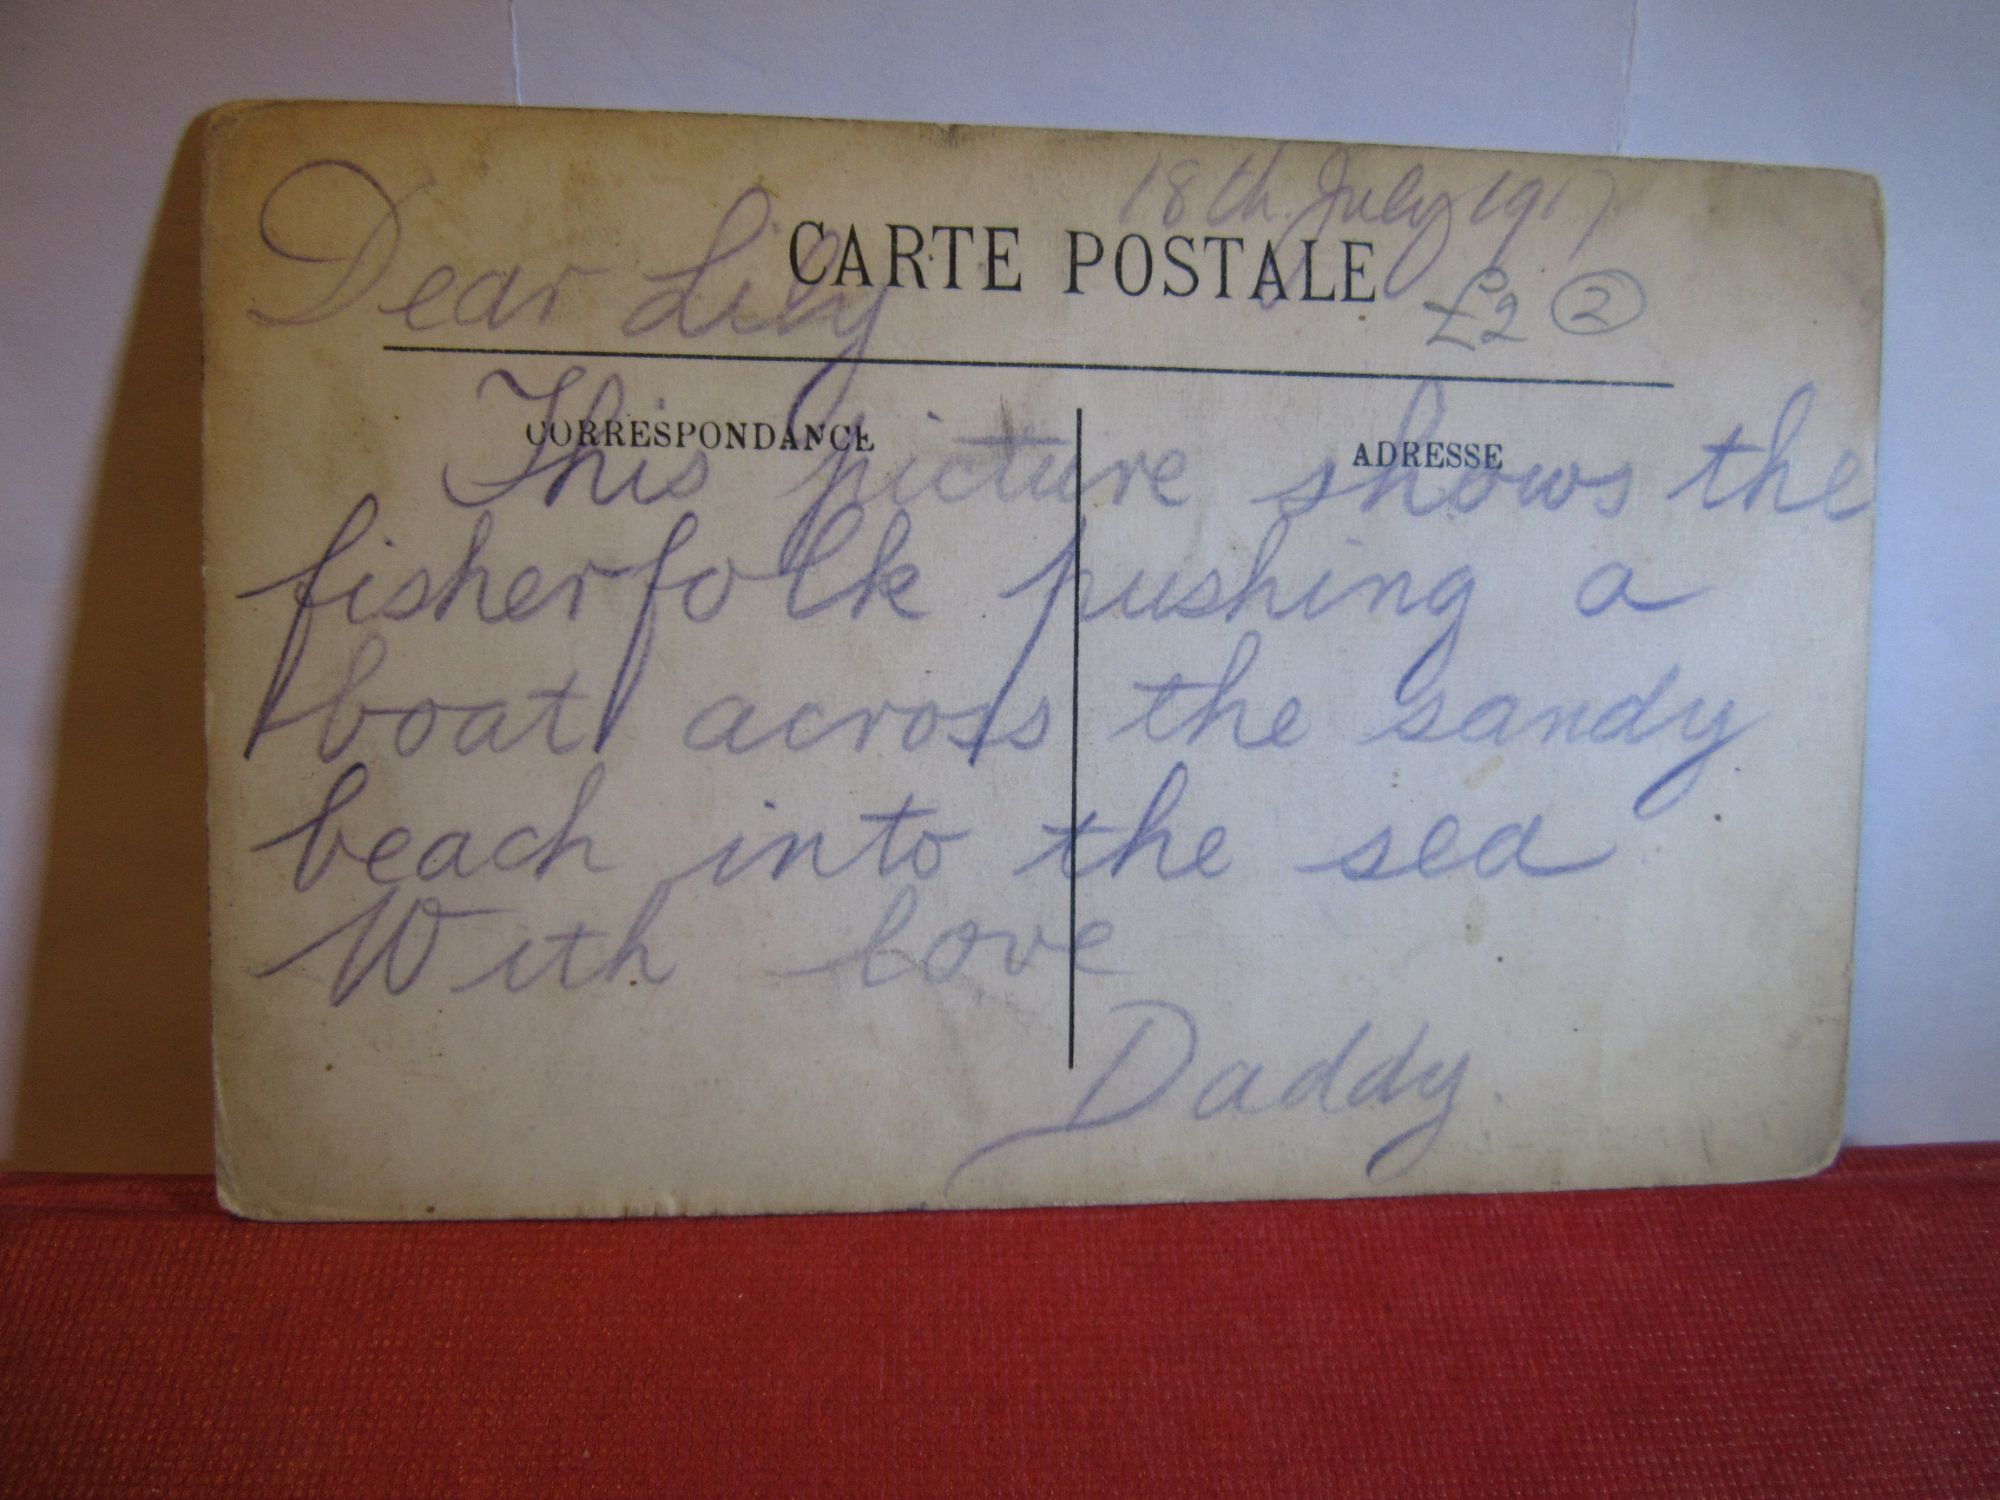 18th. July 1917
Dear Lily
CARTE POSTALE
£2 2
CORRESPONDANCE
ADRESSE
This picture shows the
fisherfolk pushing a
boat across the sandy
beach into the sea
With love
Daddy.